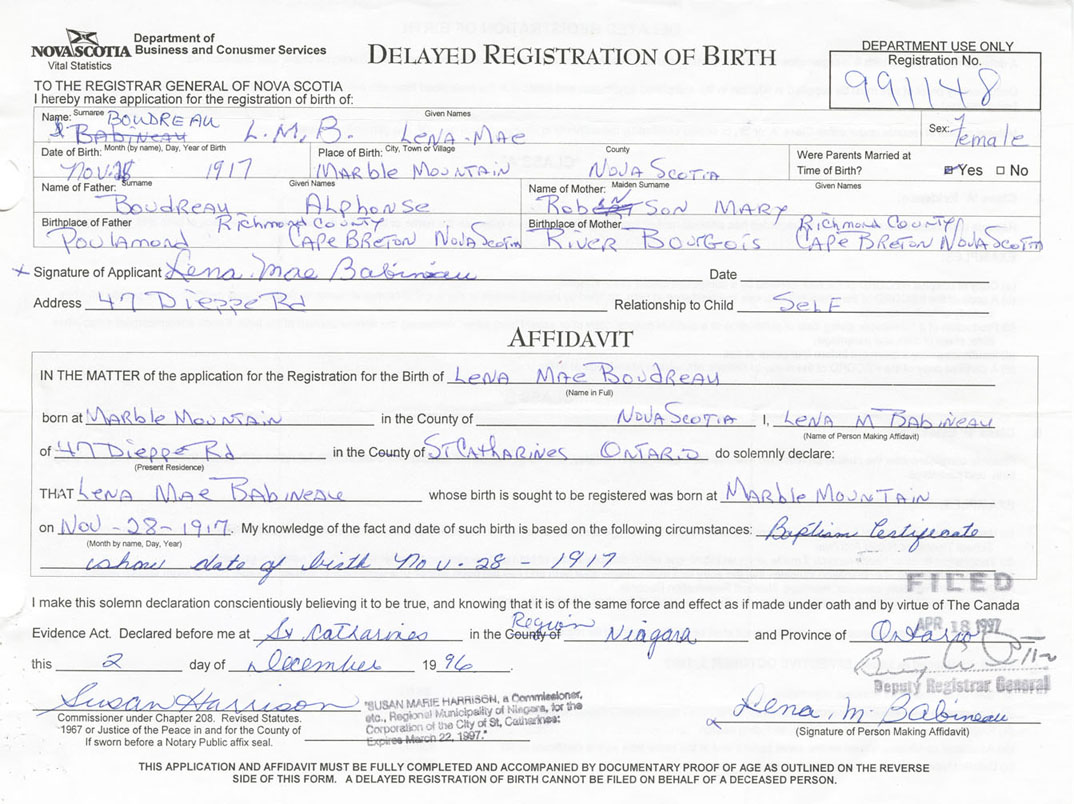 NOVA SCOTIA
Vital Statistics
Department of
Business and Conusmer Services
DELAYED REGISTRATION OF BIRTH
DEPARTMENT USE ONLY
Registration No.
991148
TO THE REGISTRAR GENERAL OF NOVA SCOTIA
I hereby make application for the registration of birth of:
Name: Surname BOUDREAU Given Names
BABINEAU L.M.B. LENA-MAE
Sex: Female
Date of Birth: Month (by name), Day, Year of Birth
Nov. 28 1917
Place of Birth: City, Town or Village County
MARBLE MOUNTAIN NOVA SCOTIA
Were Parents Married at
Time of Birth? Yes No
Name of Father: Surname Given Names
BOUDREAU ALPHONSE
Name of Mother: Maiden Surname Given Names
ROBSON MARY
Birthplace of Father Richmond County
Poulamond CAPE BRETON NOVA SCOTIA
Birthplace of Mother Richmond County
RIVER BOURGOIS CAPE BRETON NOVA SCOTIA
x Signature of Applicant Lena. Mae Babineau Date
Address 47 Dieppe Rd Relationship to Child SELF
AFFIDAVIT
IN THE MATTER of the application for the Registration for the Birth of LENA MAE BOUDREAU
(Name in Full)
born at MARBLE MOUNTAIN in the County of NOVA SCOTIA I, LENA M BABINEAU
(Name of Person Making Affidavit)
of 47 Dieppe Rd in the County of ST CATHARINES ONTARIO do solemnly declare:
(Present Residence)
THAT LENA MAE BABINEAU whose birth is sought to be registered was born at MARBLE MOUNTAIN
on NOV - 28 - 1917. My knowledge of the fact and date of such birth is based on the following circumstances: Baptism Certificate
(Month by name, Day, Year)
show date of birth Nov. 28 - 1917
FILED
I make this solemn declaration conscientiously believing it to be true, and knowing that it is of the same force and effect as if made under oath and by virtue of The Canada
Region
APR 18 1997
Evidence Act. Declared before me at St Catharines in the County of Niagara and Province of Ontario
this 2 day of December 1996.
Deputy Registrar General
Susan Harrison
Commissioner under Chapter 208. Revised Statutes.
1967 or Justice of the Peace in and for the County of
If sworn before a Notary Public affix seal.
"SUSAN MARIE HARRISON, a Commissioner,
etc., Regional Municipality of Niagara, for the
Corporation of the City of St. Catharines.
Expires March 22, 1997."
x Lena. M. Babineau
(Signature of Person Making Affidavit)
THIS APPLICATION AND AFFIDAVIT MUST BE FULLY COMPLETED AND ACCOMPANIED BY DOCUMENTARY PROOF OF AGE AS OUTLINED ON THE REVERSE
SIDE OF THIS FORM. A DELAYED REGISTRATION OF BIRTH CANNOT BE FILED ON BEHALF OF A DECEASED PERSON.